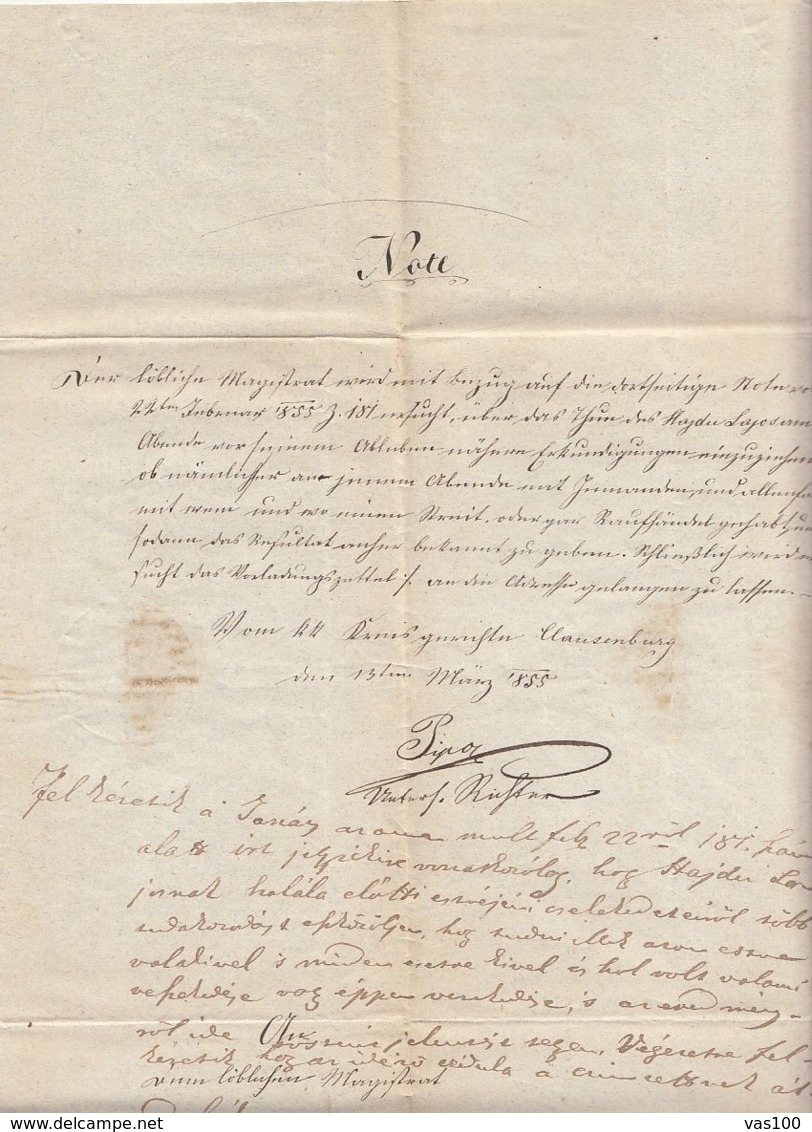 Note
Der löbliche Magistrat wird mit Bezug auf die dortseitige Note vo
22ten Februar 1855 Z. 181 ersucht, über das Thun des Hajdu Lajos am
Abende vor seinem Ableben nähere Erkundigungen einzuziehen
ob nämlicher an jenem Abende mit Jemanden, und allenfa
mit wem und wo einen Streit, oder gar Raufhändel gehabt, un
sodann das Resultat anher bekannt zu geben. Schließlich wird e
sucht das Vorladungszettel /. an die Adresse gelangen zu lassen.
Vom kk Kreisgerichte Clausenburg
den 13ten März 1855
Unters. Richter
Fel kéretik a Tanács mult feb 22ről 181.
alatt irt jegyzékire vonatkozólag, hog Hajdu La
josnak halála előtti estvéjéni cselekedeteiről több
tudakozódást eszközöljen, hog tudni illik azon estve
valakivel s minden esetre kivel és hol volt valami
veszekedése vag éppen verekedése, s az eredmény-
ről ide jelentést tegyen. Végezetre fel-
kéretik hog az idéző czédula a czimzettnek át
An
Dem löblichen Magistrat